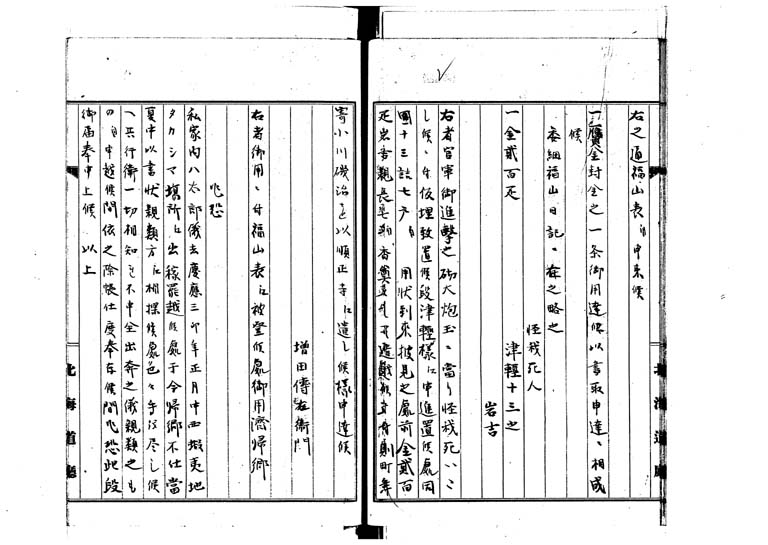 右之通福山表ゟ申来候
一贋金封金之一条御用達候以書取申達ニ相成
候
委細福山日記ニ有之略之
怪我死人
一金貳百疋 津軽十三之
岩吉
右者官軍御進撃之砌大炮玉ニ当り怪我死いた
し候ニ付仮埋致置候段津軽様江申進置候処同
国十三詰七方ゟ用状到来披見之処前金貳百
疋岩吉親長
寄小川磯治を以順正寺江遣し候様申達候
増田傳右衛門
右者御用ニ付福山表江被登候処御用済帰郷
乍恐
私家内八太郎儀去慶應三卯年正月中西蝦夷地
タカシマ場所江出稼罷越候処于今帰郷不仕当
夏中以書状親類方江相探候処色々手段尽し候
へ共行衛一切相知
のゟ申越候間依之除帳仕度奉存候間乍恐此段
御届奉申上候 以上
北海道廳
北海道廳